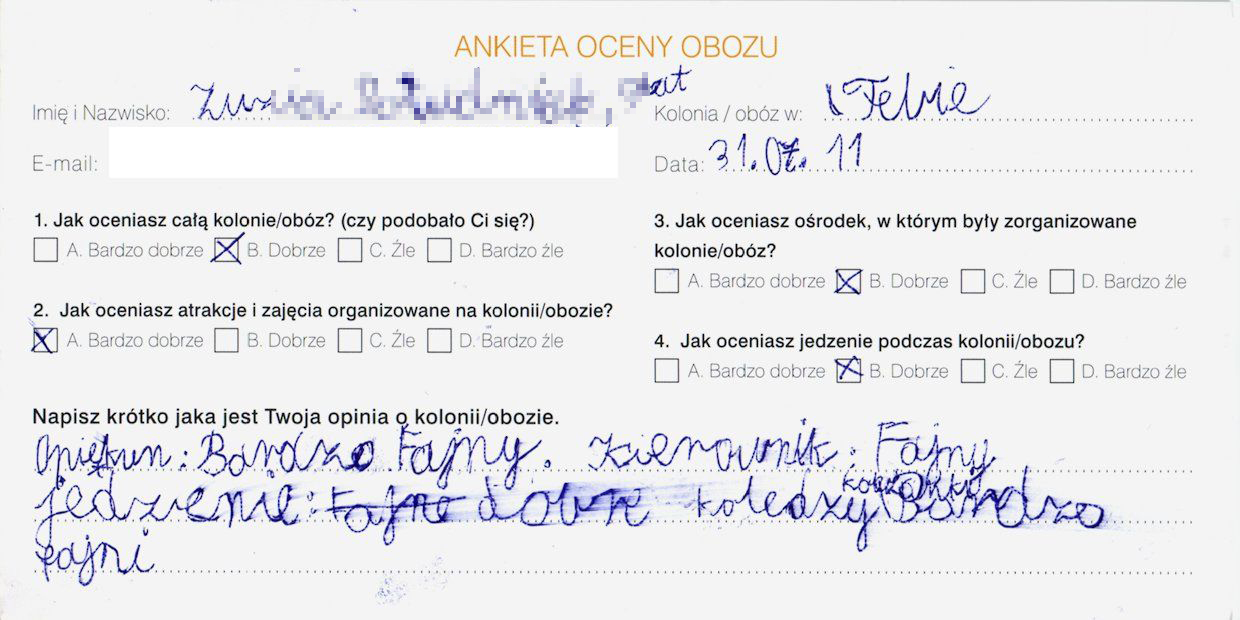 ANKIETA OCENY OBOZU
Imię i Nazwisko:
E-mail:
Kolonia / obóz w: Febie
Data: 31.07.11
1. Jak oceniasz całą kolonie/obóz? (czy podobało Ci się?)
A. Bardzo dobrze B. Dobrze C. Źle D. Bardzo źle
2. Jak oceniasz atrakcje i zajęcia organizowane na kolonii/obozie?
A. Bardzo dobrze B. Dobrze C. Źle D. Bardzo źle
3. Jak oceniasz ośrodek, w którym były zorganizowane
kolonie/obóz?
A. Bardzo dobrze B. Dobrze C. Źle D. Bardzo źle
4. Jak oceniasz jedzenie podczas kolonii/obozu?
A. Bardzo dobrze B. Dobrze C. Źle D. Bardzo źle
Napisz krótko jaka jest Twoja opinia o kolonii/obozie.
Opiekun: Bardzo Fajny. Kierownik: Fajny
jedzenie: Fajne dobre koledzy Bardzo
Fajni